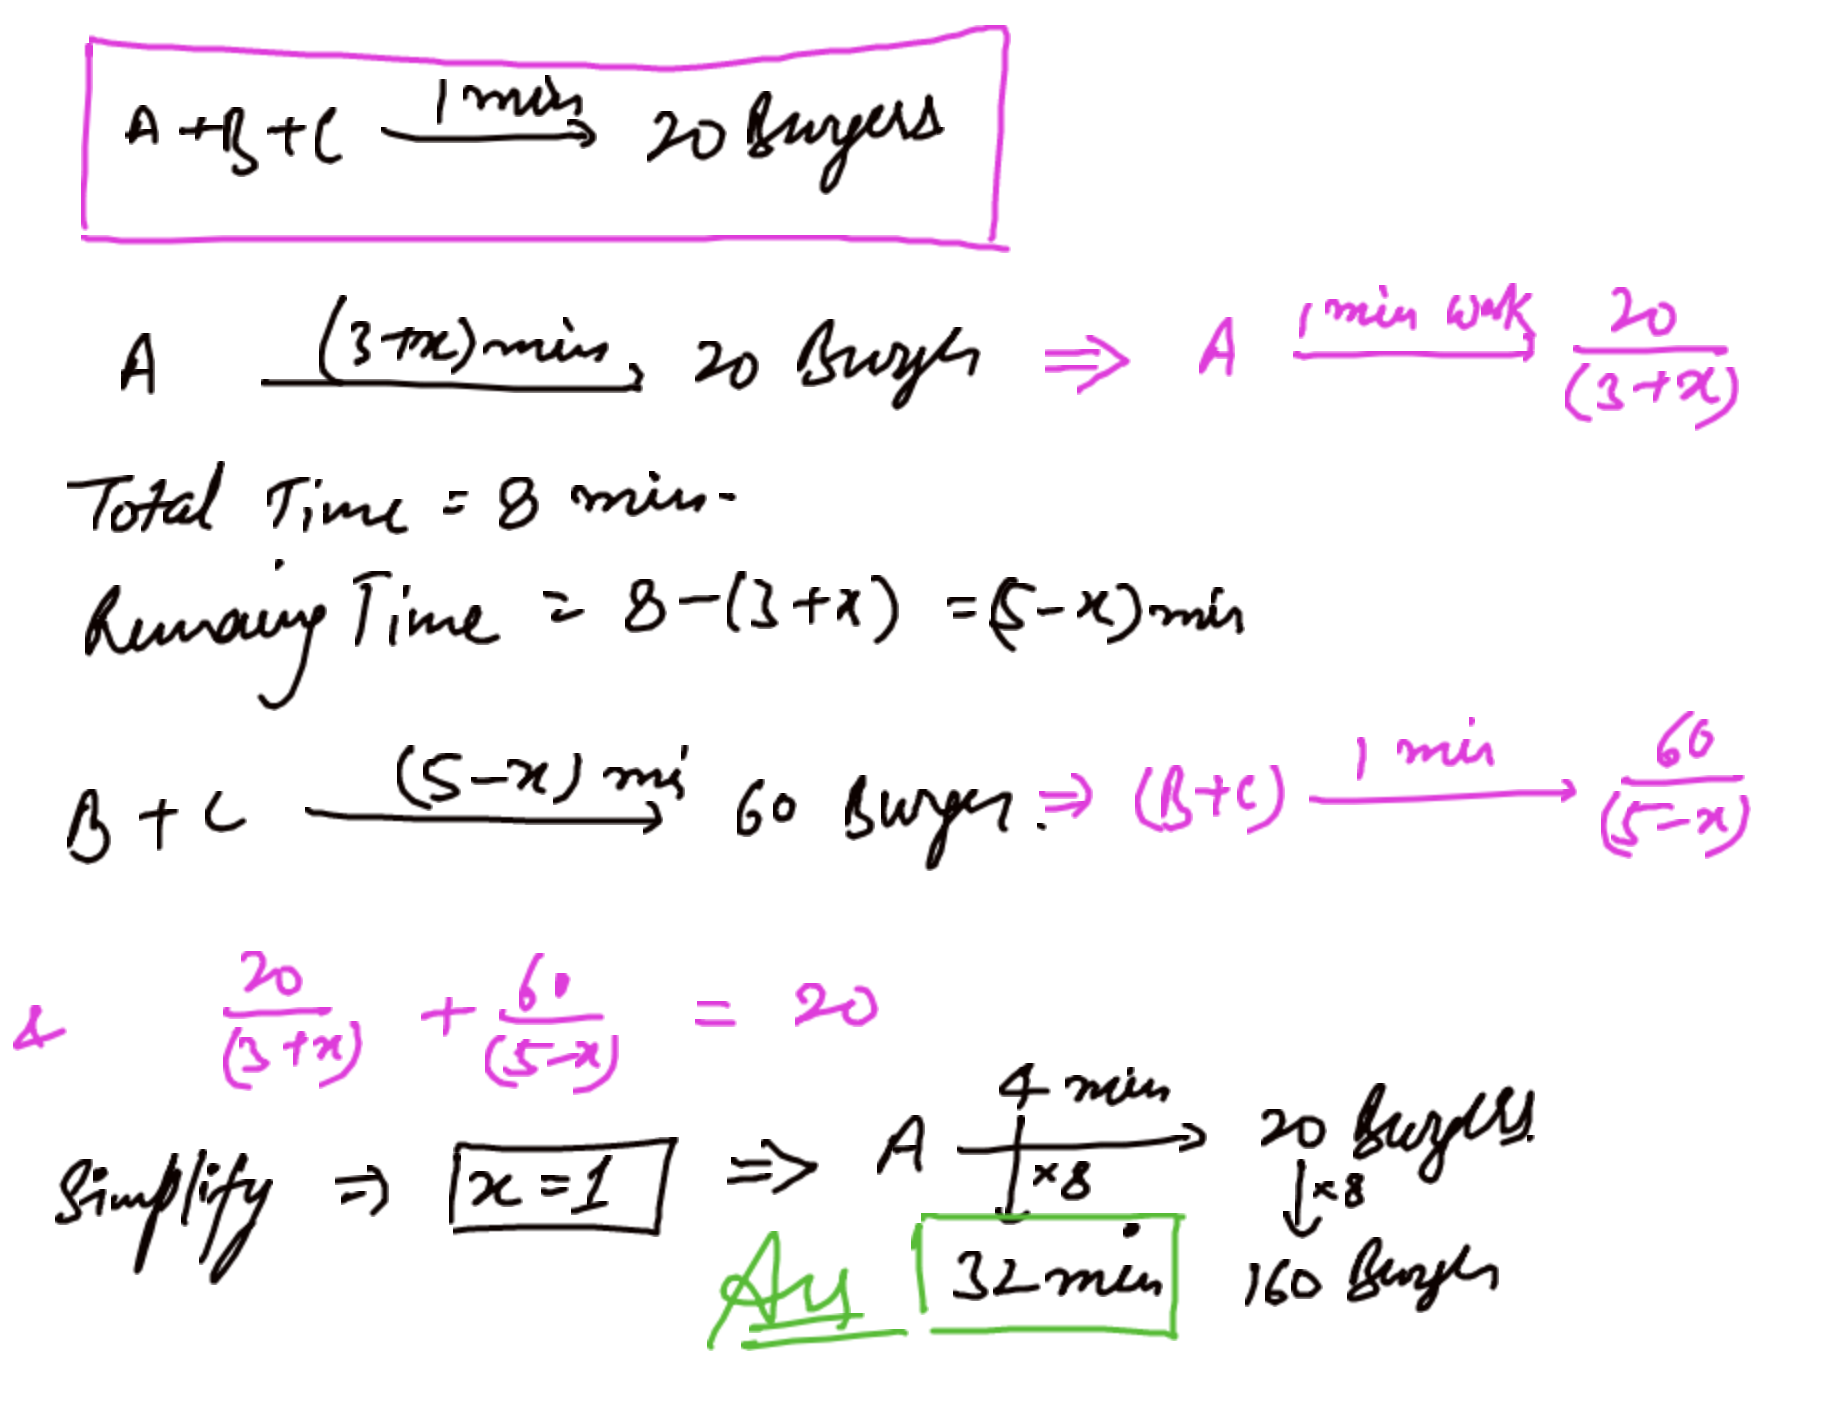 A+B+C 1 min → 20 Burgers
A (3+x) min → 20 Burger ⇒ A 1 min work → 20/(3+x)
Total Time = 8 min.
Remaining Time = 8-(3+x) = (5-x) min
B+C (5-x) mi → 60 Burger. ⇒ (B+C) 1 min → 60/(5-x)
& 20/(3+x) + 60/(5-x) = 20
Simplify ⇒ x=1 ⇒ A 4 min → 20 Burgers
×8 ×8
Ans 32 min 160 Burger